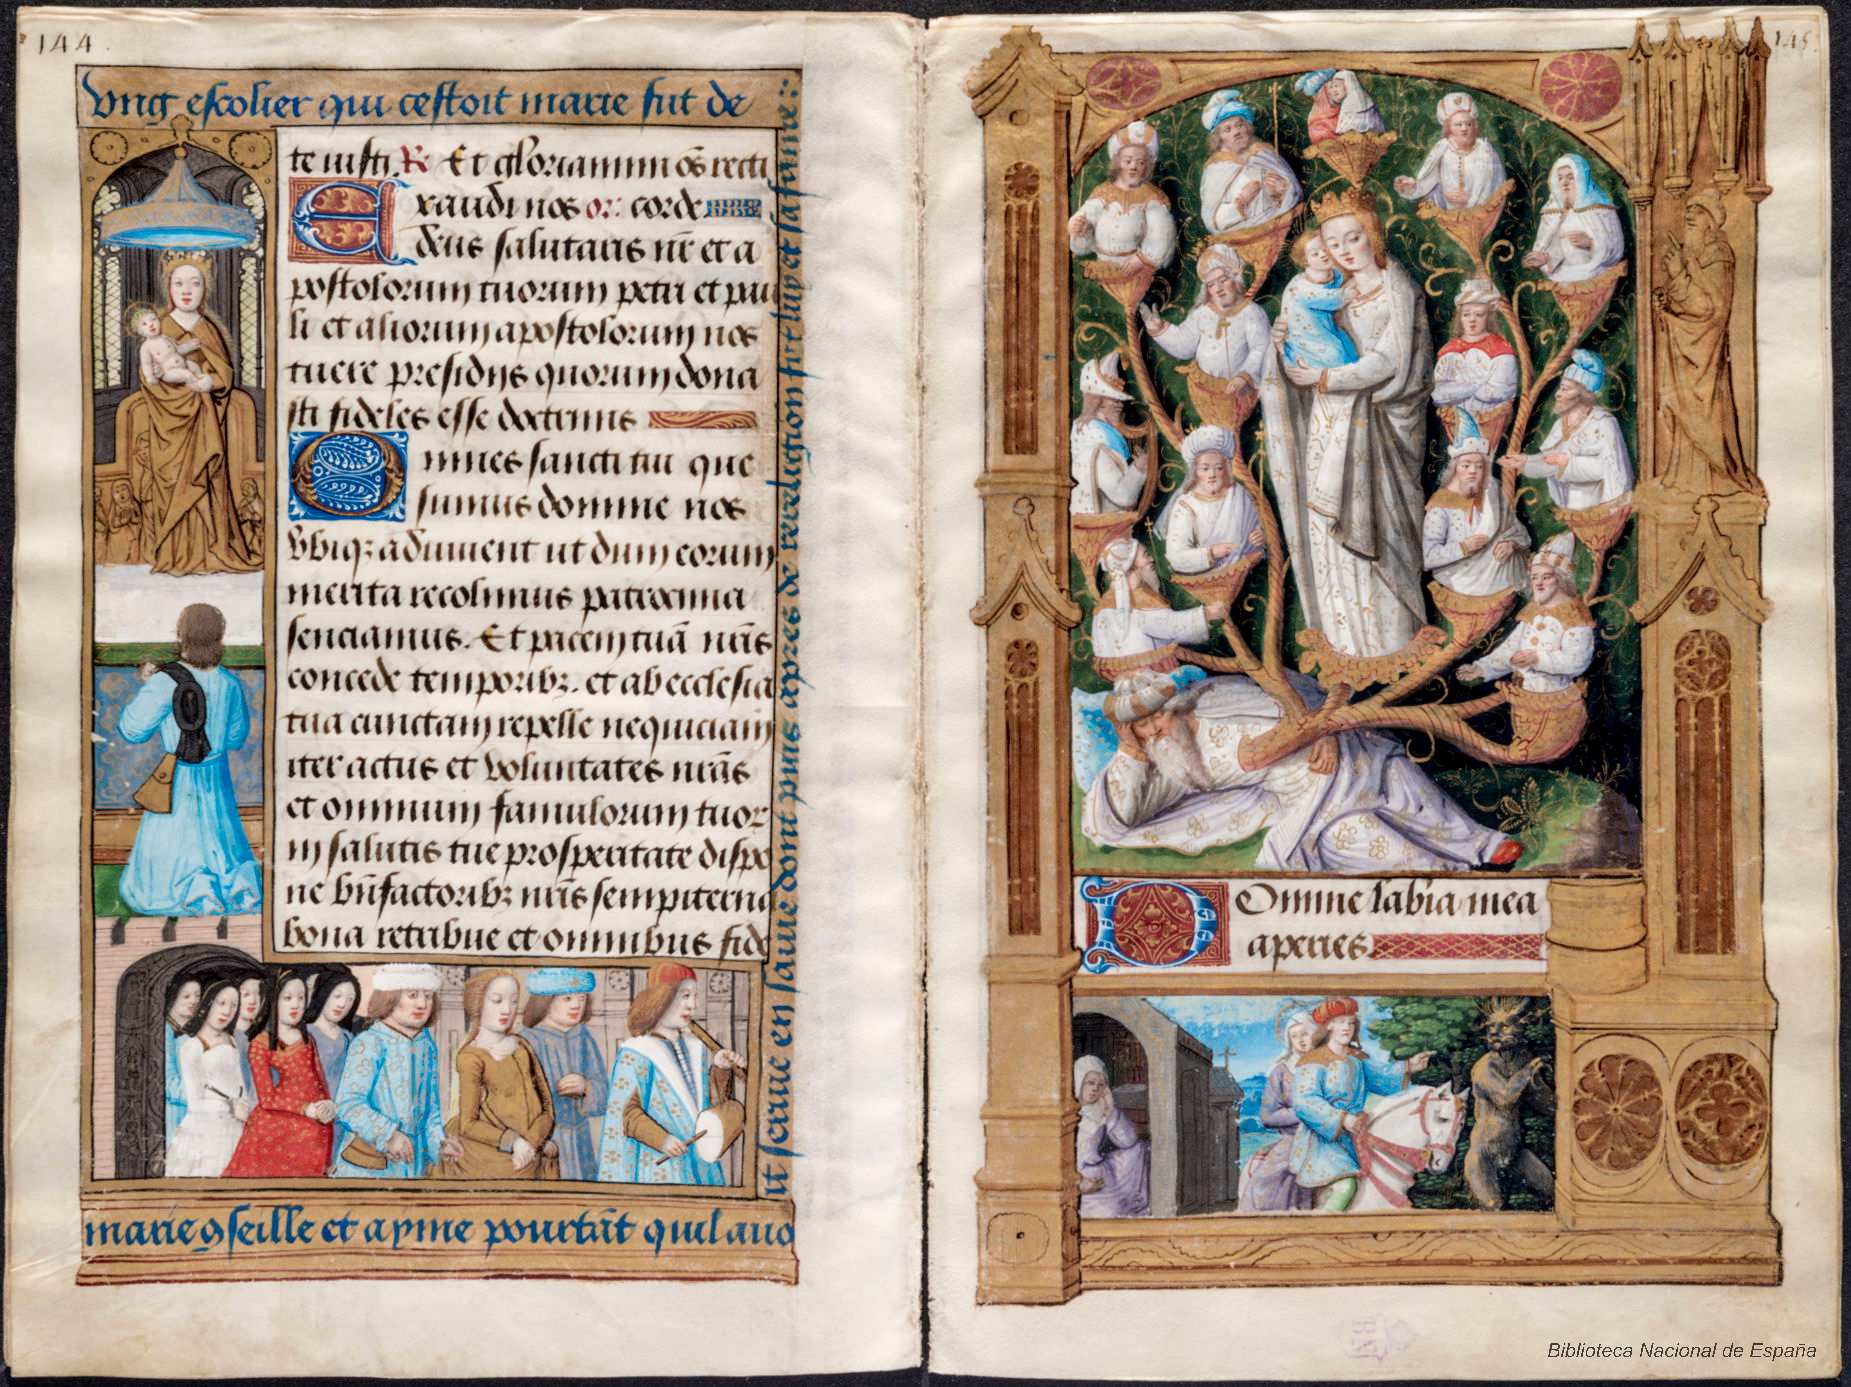 144
Vng escolier qui cestoit marie fut de
te iusti. R Et gloriamini o͞s recti
Exaudi nos or: corde
deus salutaris nr̄ et a
postolorum tuorum petri et pau
li et aliorum apostolorum nos
tuere presidijs quorum dona
sti fideles esse doctrinis
Omnes sancti tui que
sumus domine nos
vbiqꝫ adiuuent ut dum eorum
merita recolimus patrocinia
senciamus. Et pacem tuā nr̄is
concede temporibꝫ. et ab ecclesia
tua cunctam repelle nequiciam
iter actus et voluntates nr̄as
et omnium famulorum tuor
in salutis tue prosperitate dispo
ne bn̄factoribꝫ nr̄is sempiterna
bona retribue et omnibus fide
marie ꝯseille et ayme pourtāt quil auo
it seruie en sa uie dont puis apres de religion
145
Domine labia mea
aperies
Biblioteca Nacional de España